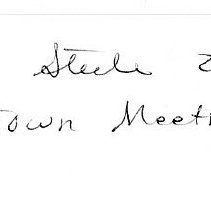 Steele
Town Meet